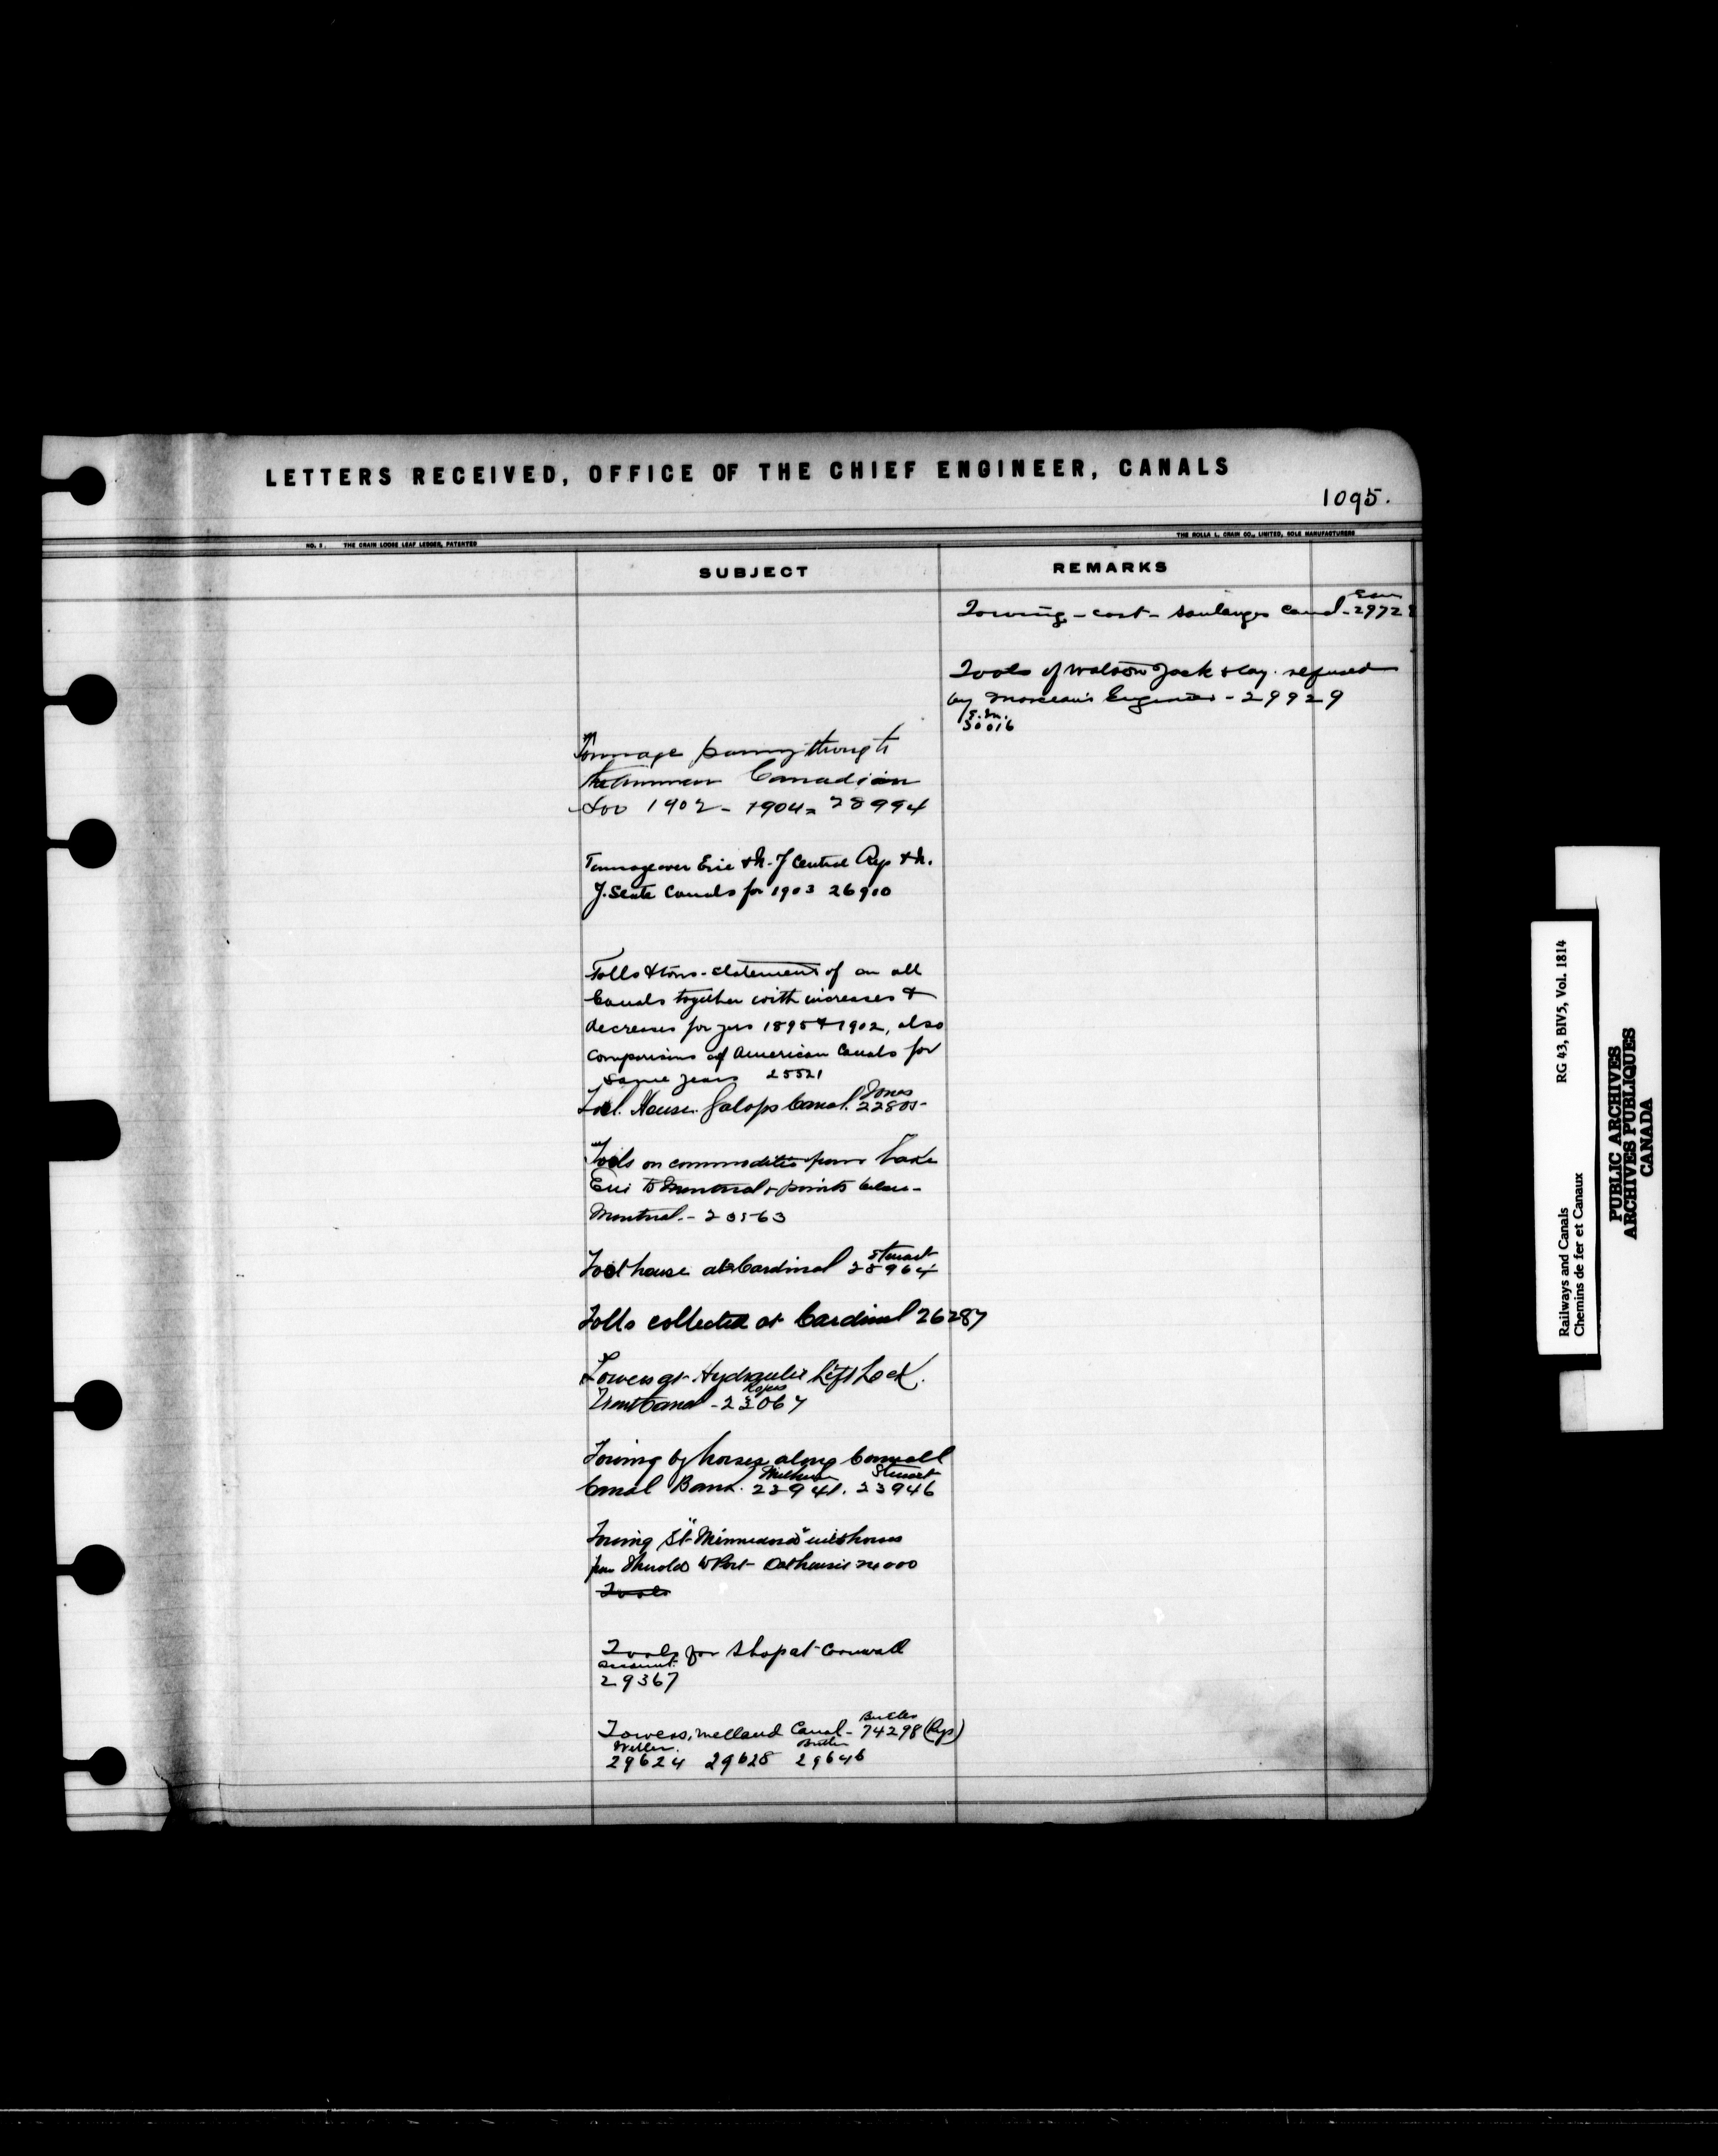 LETTERS RECEIVED, OFFICE OF THE CHIEF ENGINEER, CANALS
1095.
NO. 2. THE CRAIN LOOSE LEAF LEDGER, PATENTED
THE ROLLA L. CRAIN CO., LIMITED, SOLE MANUFACTURERS
SUBJECT
REMARKS
Towing - cost - Soulanges Canal - 2972
Tools of Watson Jack & Coy. refused
by Engineer - 29929
30016
Tonnage passing through
Canadian
Soo 1902 - 1904 = 28994
Tonnage over Erie & N. Y Central Rys & N.
Y. State Canals for 1903 26910
Tolls & tons - statement of on all
Canals together with increases &
decreases for yrs 1895 & 1902, also
comparisons of American Canals for
same years 25521
Jones
Tool House. Galops Canal. 22805
Tolls on commodities from Lake
Erie to Montreal & points below
Montreal. - 20563
Stewart
Tool house at Cardinal 28964
Tolls collected at Cardinal 26287
Towers at Hydraulic Lift Lock.
Rogers
Trent Canal - 23067
Towing by horses along Cornwall
Stewart
Canal Bank. 22941. 23946
Towing St "Minnedosa" with horses
from Thorold to Port Dalhousie 24000
Tools
Tools for Shop at Cornwall
account.
29367
Butler
Towers, Welland Canal - 74298 (Rys)
Weller. Butler
29624 29628 29646
Railways and Canals RG 43, BIV5, Vol. 1814
Chemins de fer et Canaux
PUBLIC ARCHIVES
ARCHIVES PUBLIQUES
CANADA